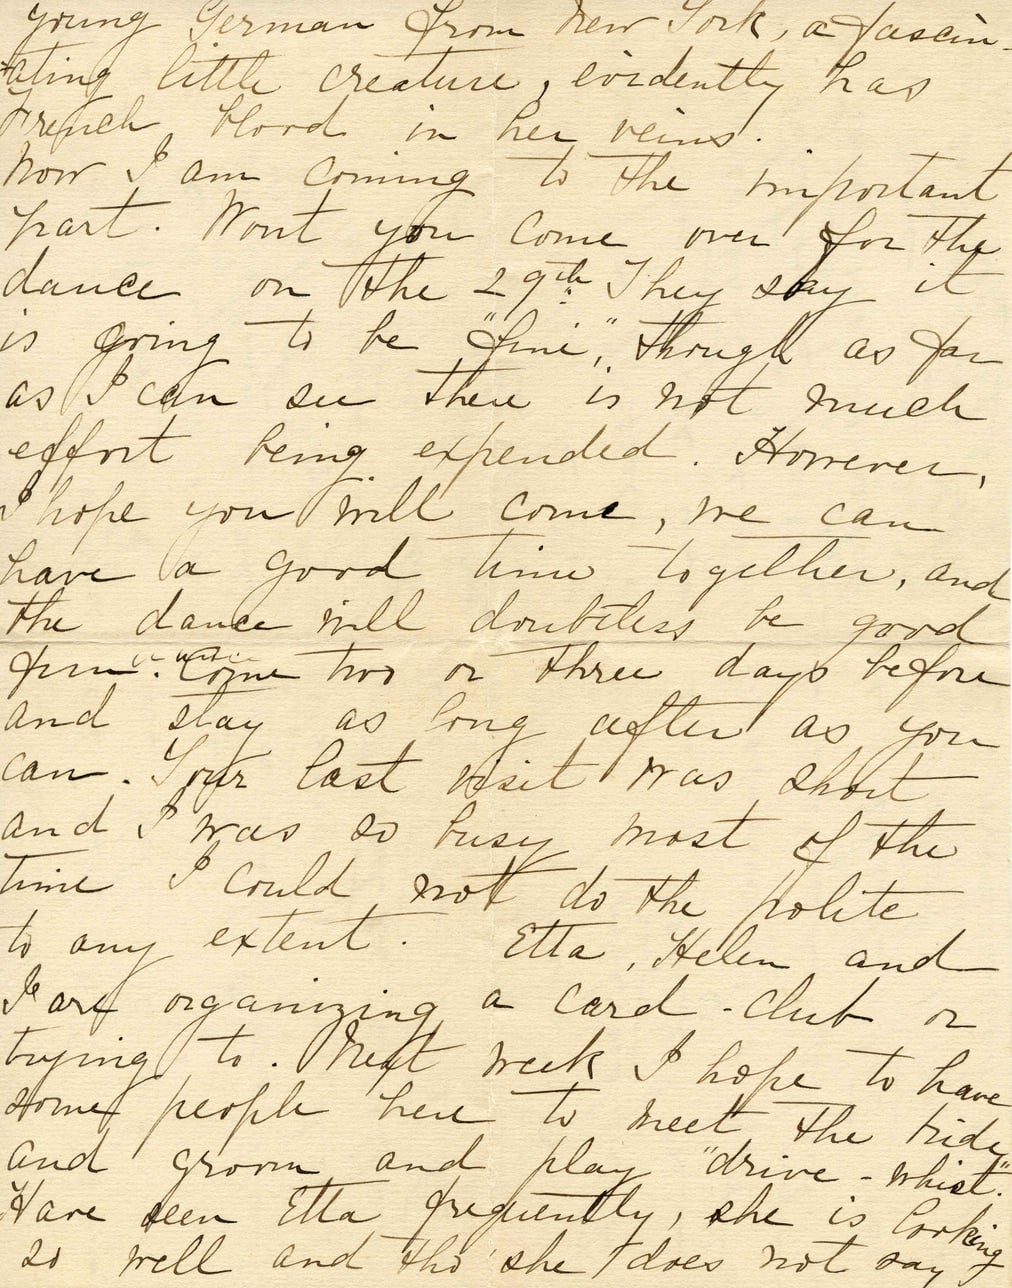 young German from New York, a fascin-
-ating little creature, evidently has
French blood in her veins.
Now I am coming to the important
part. Wont you come over for the
dance on the 29th. They say it
is going to be "fine", though as far
as I can see there is not much
effort being expended. However,
I hope you will come, we can
have a good time together, and
the dance will doubtless be good
fun. Come two or three days before
and stay as long after as you
can. Your last visit was short
and I was so busy most of the
time I could not do the polite
to any extent. Etta, Helen and
I are organizing a card-club or
trying to. Next week I hope to have
some people here to meet the bride
and groom and play "drive-whist."
Have seen Etta frequently, she is looking
so well and tho' she does not say